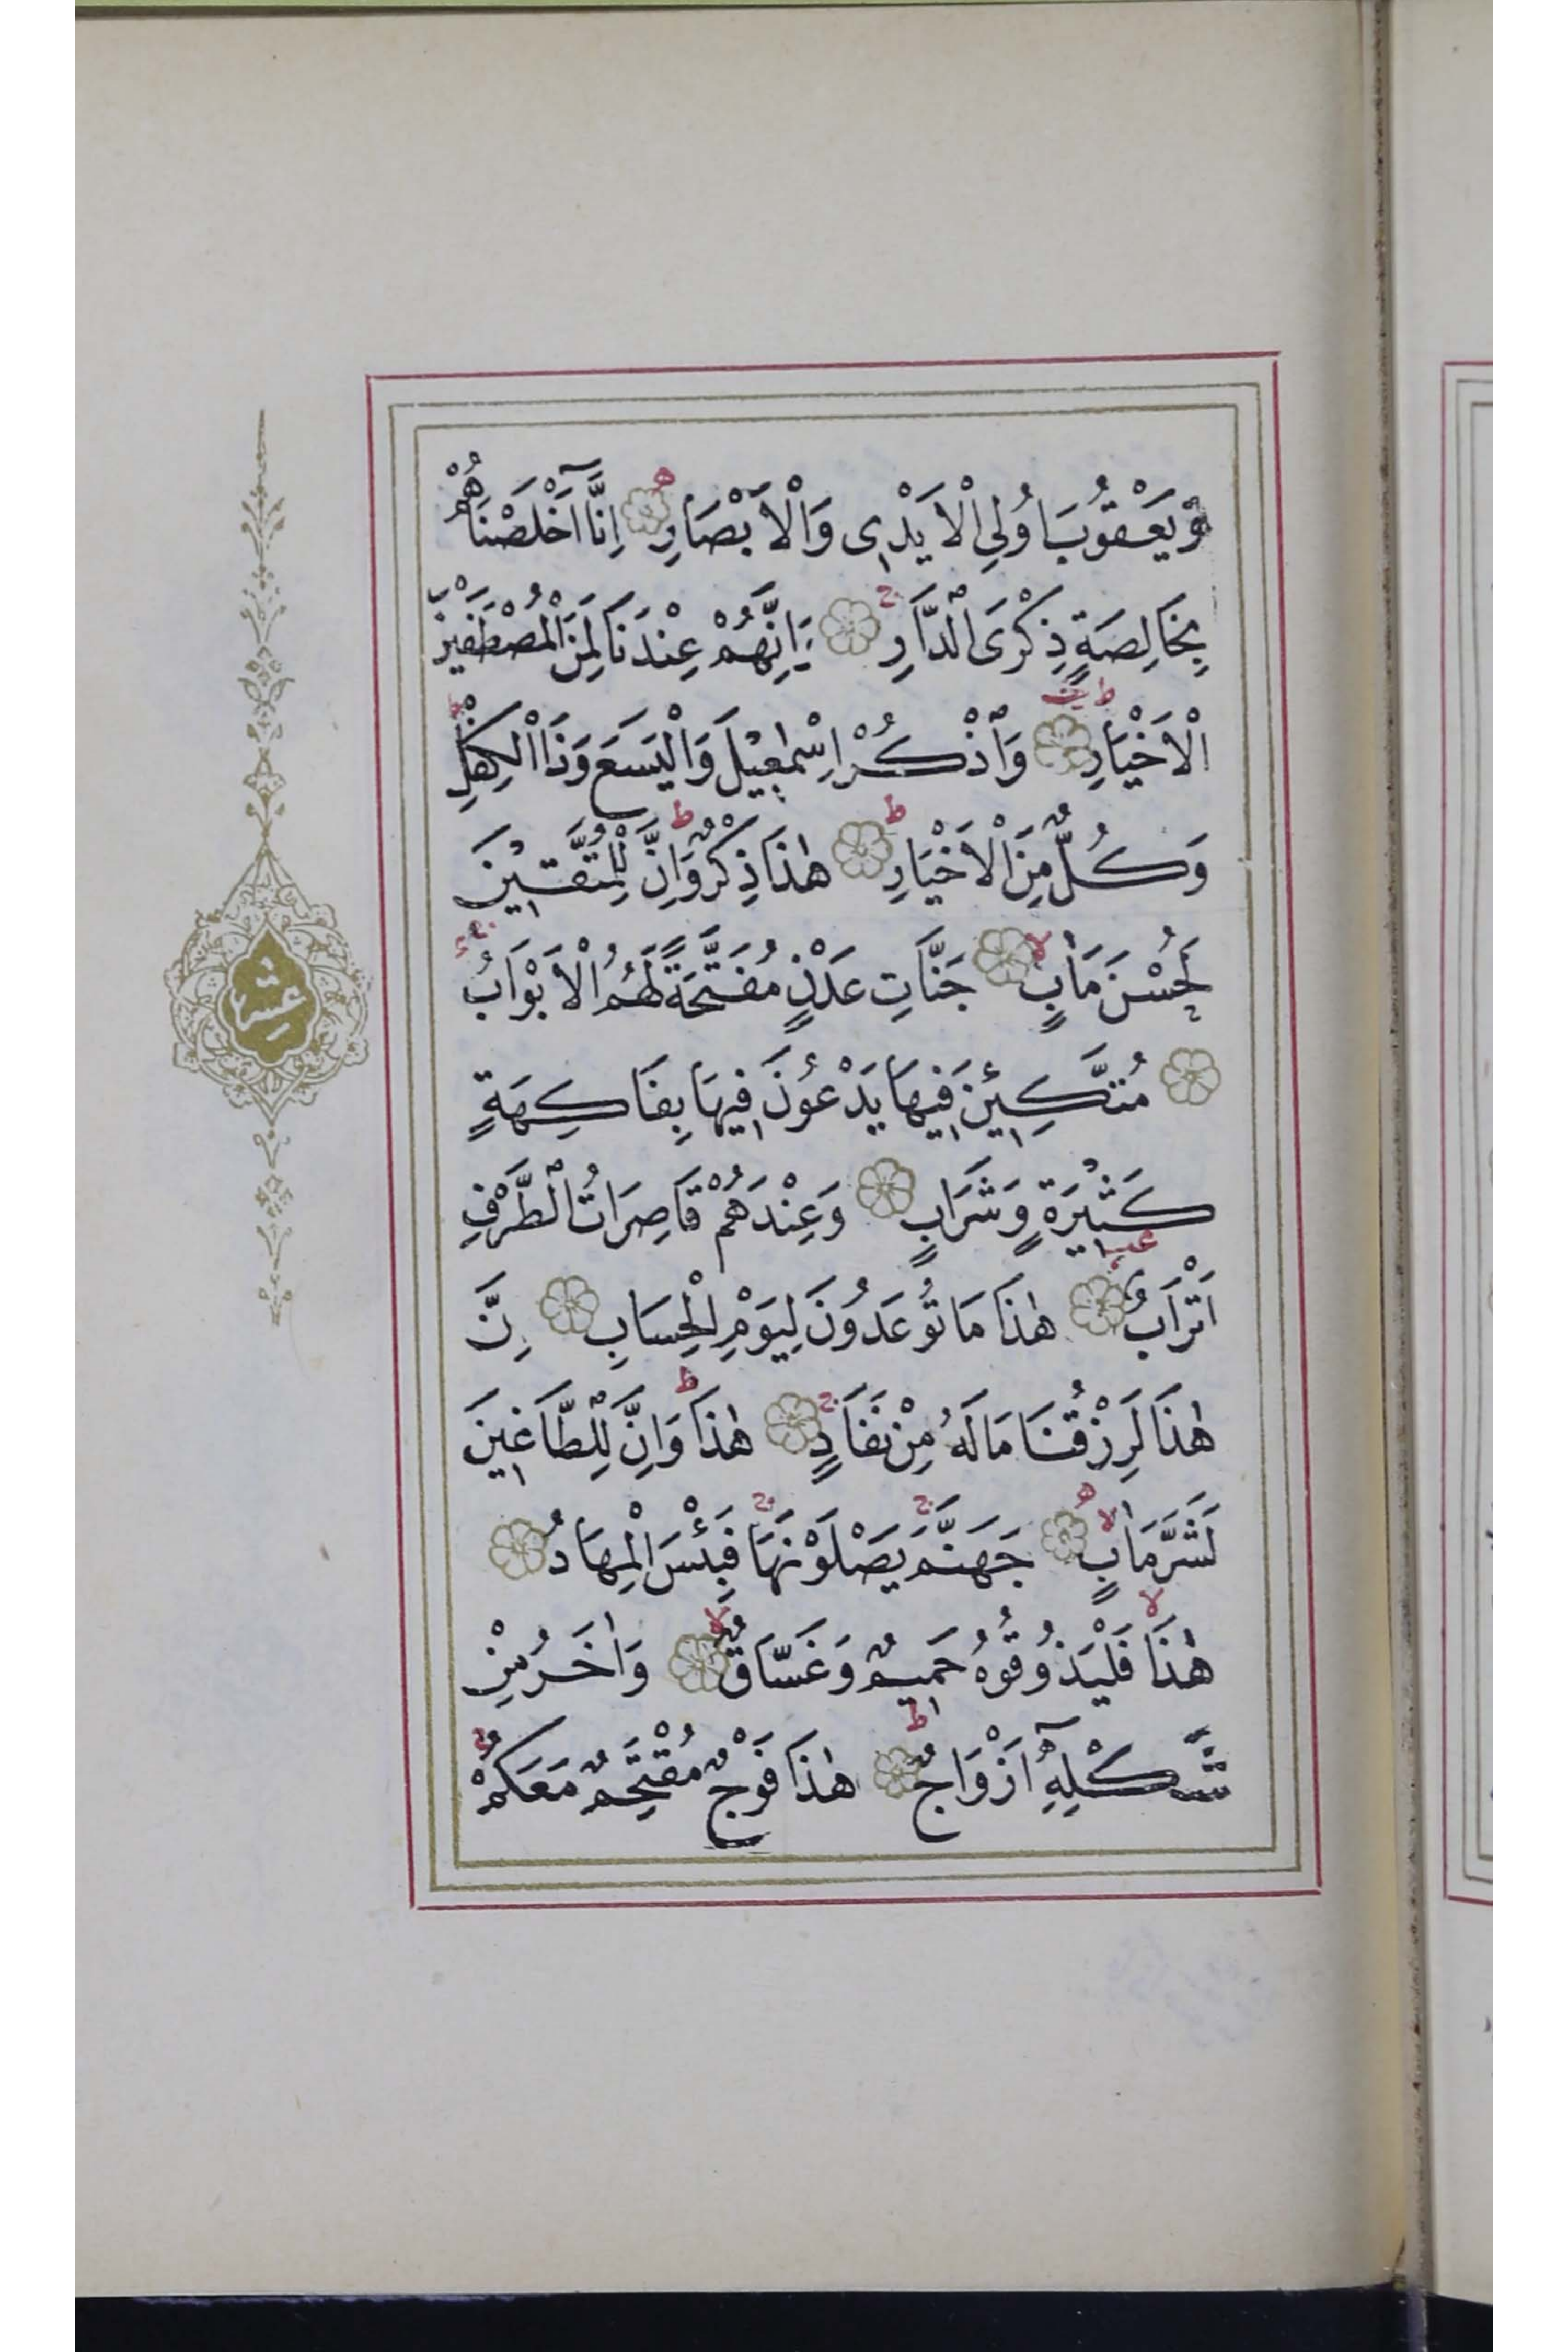 وَيَعْقُوبَ اُولِي الْاَيْدِي وَالْاَبْصَارِ اِنَّٓا اَخْلَصْنَاهُمْ
بِخَالِصَةٍ ذِكْرَى الدَّارِ وَاِنَّهُمْ عِنْدَنَا لَمِنَ الْمُصْطَفَيْنَ
الْاَخْيَارِ وَاذْكُرْ اِسْمٰعِيلَ وَالْيَسَعَ وَذَا الْكِفْلِ
وَكُلٌّ مِنَ الْاَخْيَارِ هٰذَا ذِكْرٌ وَاِنَّ لِلْمُتَّقِينَ
لَحُسْنَ مَاٰبٍ جَنَّاتِ عَدْنٍ مُفَتَّحَةً لَهُمُ الْاَبْوَابُ
مُتَّكِـِٔينَ فِيهَا يَدْعُونَ فِيهَا بِفَاكِهَةٍ
كَثِيرَةٍ وَشَرَابٍ وَعِنْدَهُمْ قَاصِرَاتُ الطَّرْفِ
اَتْرَابٌ هٰذَا مَا تُوعَدُونَ لِيَوْمِ الْحِسَابِ اِنَّ
هٰذَا لَرِزْقُنَا مَا لَهُ مِنْ نَفَادٍ هٰذَا وَاِنَّ لِلطَّاغِينَ
لَشَرَّ مَاٰبٍ جَهَنَّمَ يَصْلَوْنَهَا فَبِئْسَ الْمِهَادُ
هٰذَا فَلْيَذُوقُوهُ حَمِيمٌ وَغَسَّاقٌ وَاٰخَرُ مِنْ
شَكْلِهِٓ اَزْوَاجٌ هٰذَا فَوْجٌ مُقْتَحِمٌ مَعَكُمْ
عشر